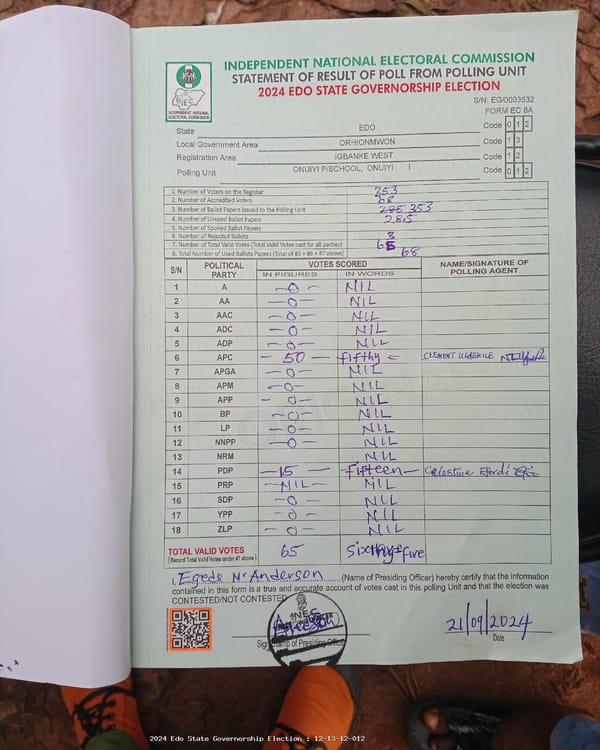 INDEPENDENT NATIONAL ELECTORAL COMMISSION
STATEMENT OF RESULT OF POLL FROM POLLING UNIT
2024 EDO STATE GOVERNORSHIP ELECTION
INEC
INDEPENDENT NATIONAL ELECTORAL COMMISSION
S/N: EG/0003532
FORM EC 8A
State EDO Code 0 1 2
Local Government Area ORHIONMWON Code 1 3
Registration Area IGBANKE WEST Code 1 2
Polling Unit ONUIYI P/SCHOOL, ONUIYI I Code 0 1 2
1. Number of Voters on the Register 353
2. Number of Accredited Voters 68
3. Number of Ballot Papers Issued to the Polling Unit 285 353
4. Number of Unused Ballot Papers 285
5. Number of Spoiled Ballot Papers
6. Number of Rejected Ballots 3
7. Number of Total Valid Votes (Total Valid Votes cast for all parties) 65
8. Total Number of Used Ballots Papers (Total of #5 + #6 + #7 above) 68
S/N POLITICAL PARTY VOTES SCORED NAME/SIGNATURE OF POLLING AGENT
IN FIGURES IN WORDS
1 A —0— NIL
2 AA —0— NIL
3 AAC —0— NIL
4 ADC —0— NIL
5 ADP —0— NIL
6 APC — 50 — fifthy = CLEMENT
7 APGA —0— NIL
8 APM —0— NIL
9 APP — 0— NIL
10 BP —0— NIL
11 LP —0— NIL
12 NNPP —0— NIL
13 NRM NIL
14 PDP —15 — Fifteen— Celestina
15 PRP —NIL— NIL
16 SDP —0— NIL
17 YPP —0— NIL
18 ZLP —0— NIL
TOTAL VALID VOTES 65 five
(Record Total Valid Votes under #7 above)
I, Egede N. Anderson (Name of Presiding Officer) hereby certify that the information
contained in this form is a true and accurate account of votes cast in this polling Unit and that the election was
CONTESTED/NOT CONTESTED
INEC
21/09/2024
Sign/Stamp of Presiding Officer Date
2024 Edo State Governorship Election : 12-13-12-012